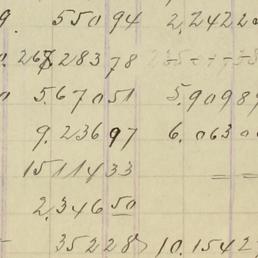 9. 550 94 2,2422
28378
5.670 51 5.9098
9.236 97 6.0630
15114 33
2.346 50
35228 10.1542